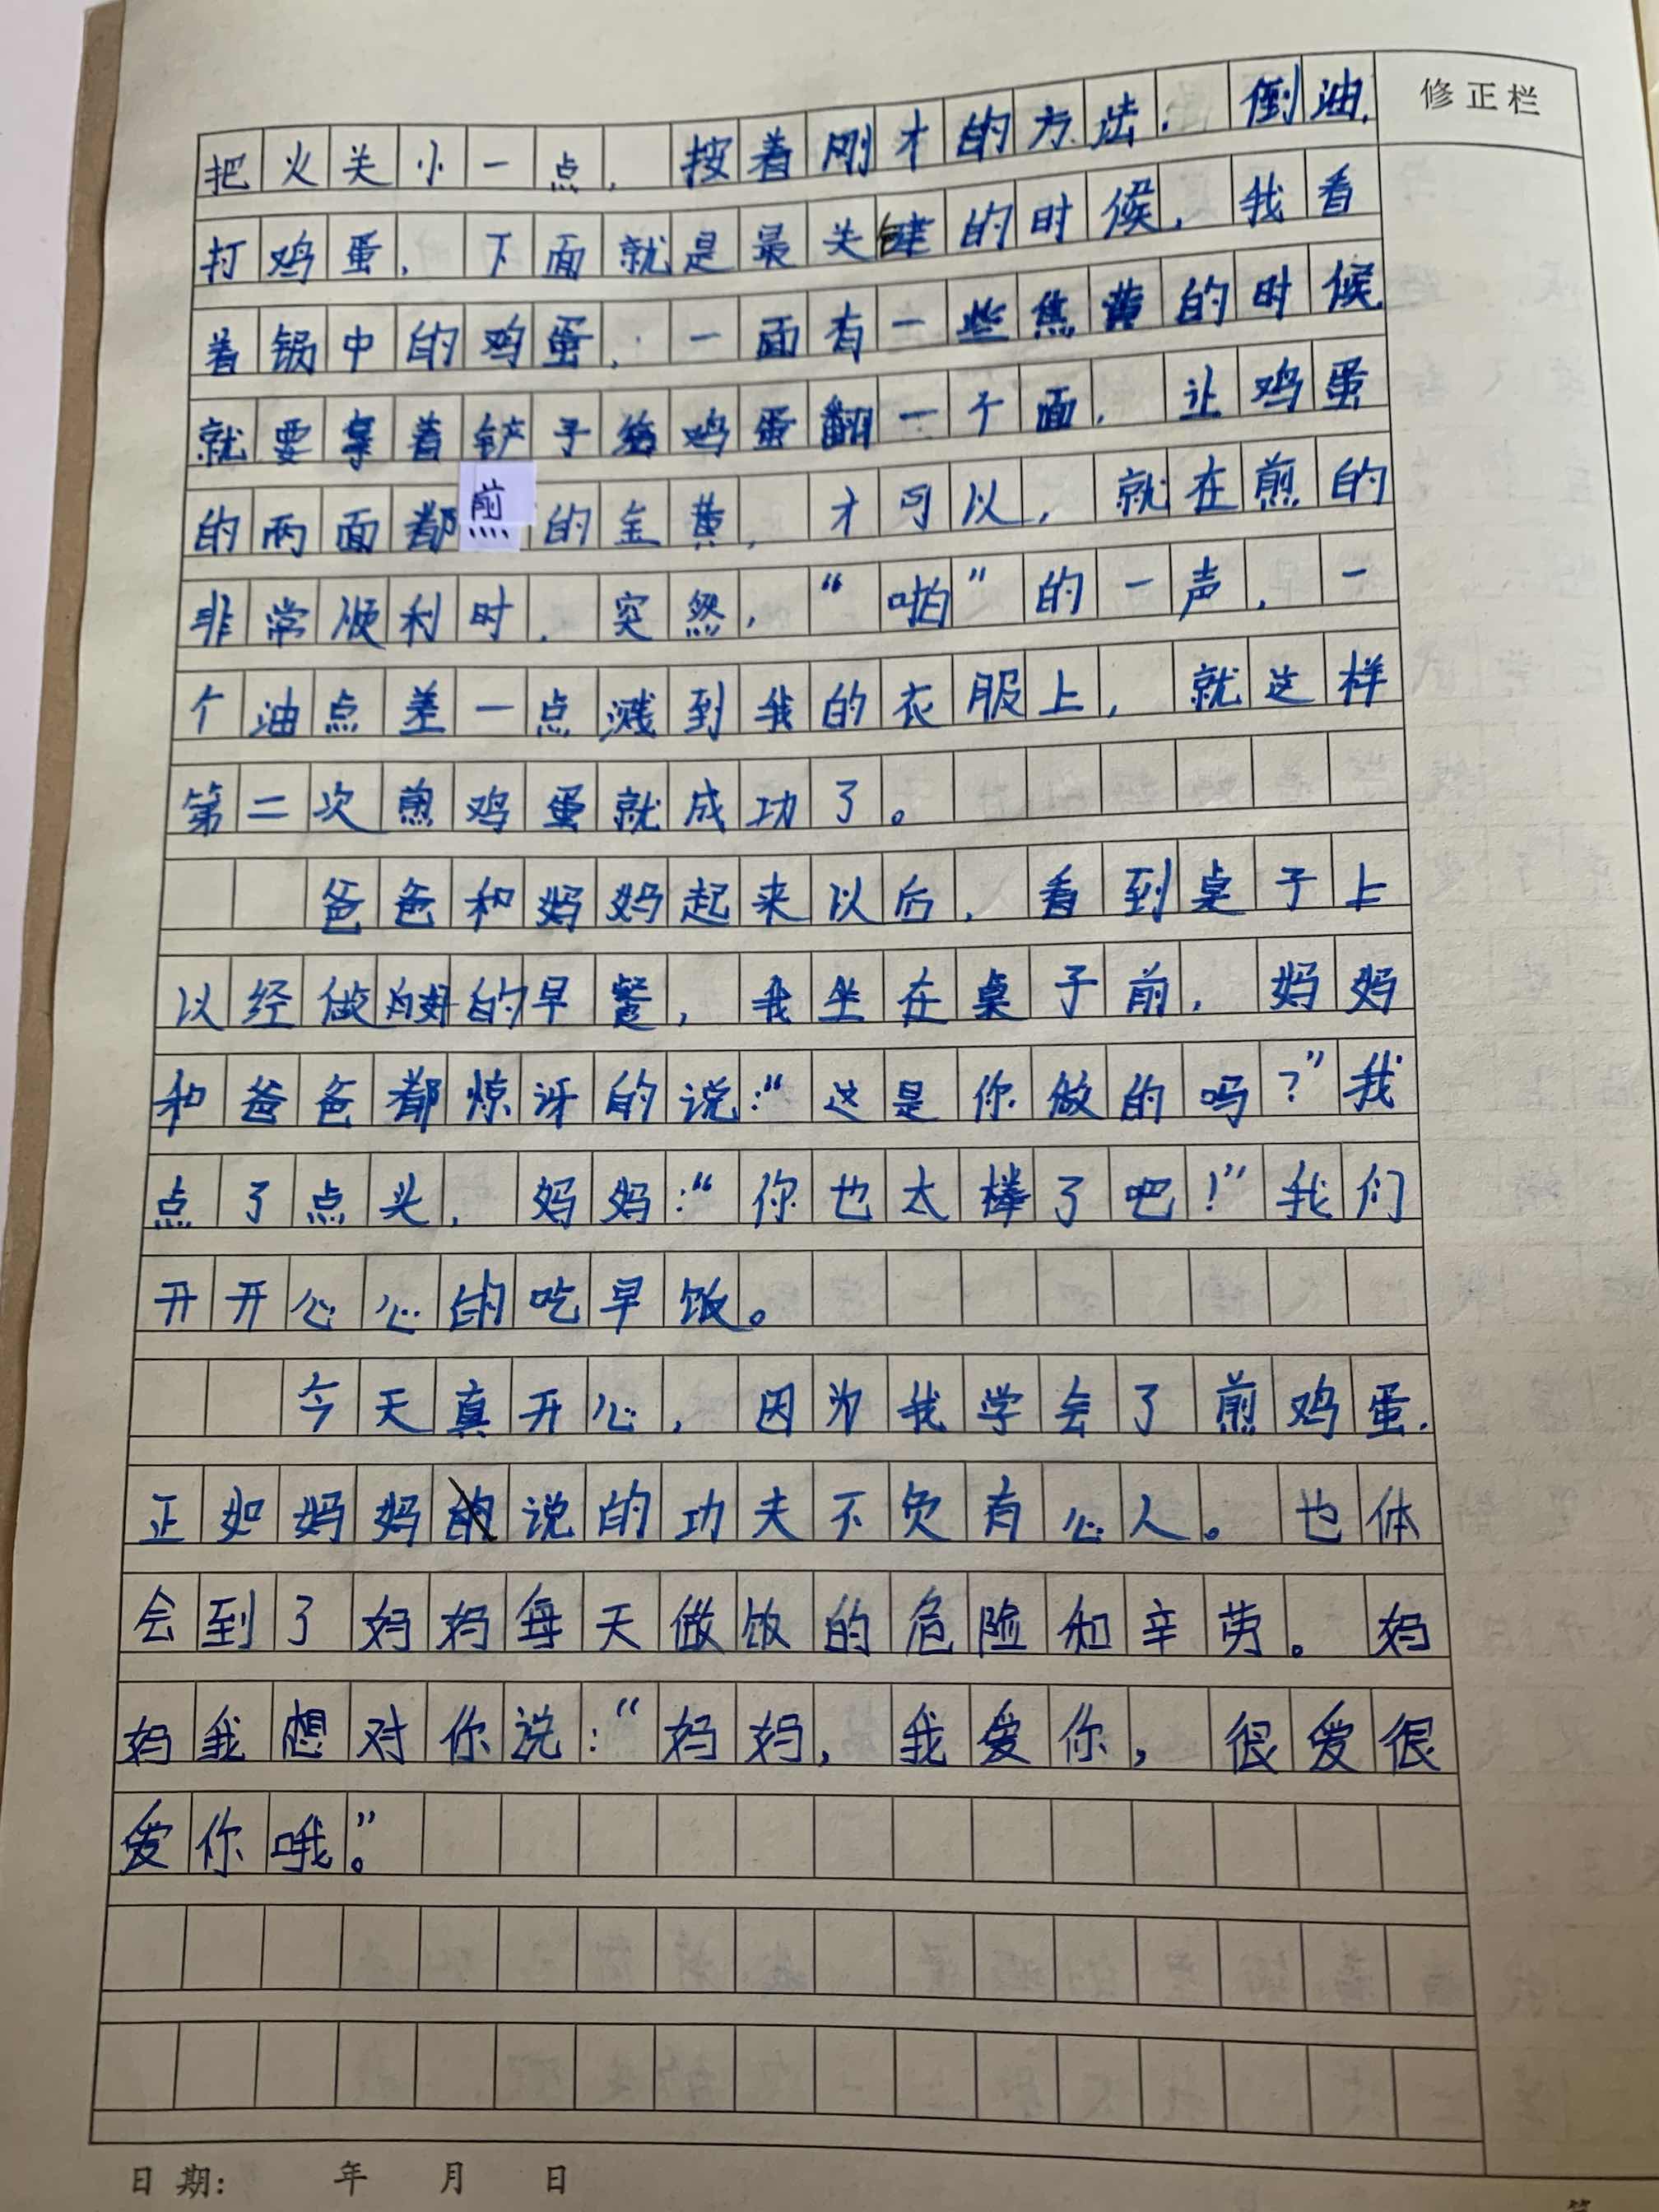 修正栏
把火关小一点，按着刚才的方法，倒油，
打鸡蛋，下面就是最关键的时候，我看
着锅中的鸡蛋，一面有一些焦黄的时候
就要拿着铲子给鸡蛋翻一个面，让鸡蛋
的两面都煎的金黄，才可以，就在煎的
非常顺利时，突然，“啪”的一声，一
个油点差一点溅到我的衣服上，就这样
第二次煎鸡蛋就成功了。
爸爸和妈妈起来以后，看到桌子上
以经做好的早餐，我坐在桌子前，妈妈
和爸爸都惊讶的说：“这是你做的吗？”我
点了点头，妈妈：“你也太棒了吧！”我们
开开心心的吃早饭。
今天真开心，因为我学会了煎鸡蛋.
正如妈妈说的功夫不负有心人。也体
会到了妈妈每天做饭的危险和辛劳。妈
妈我想对你说：“妈妈，我爱你，很爱很
爱你哦。”
日期： 年 月 日